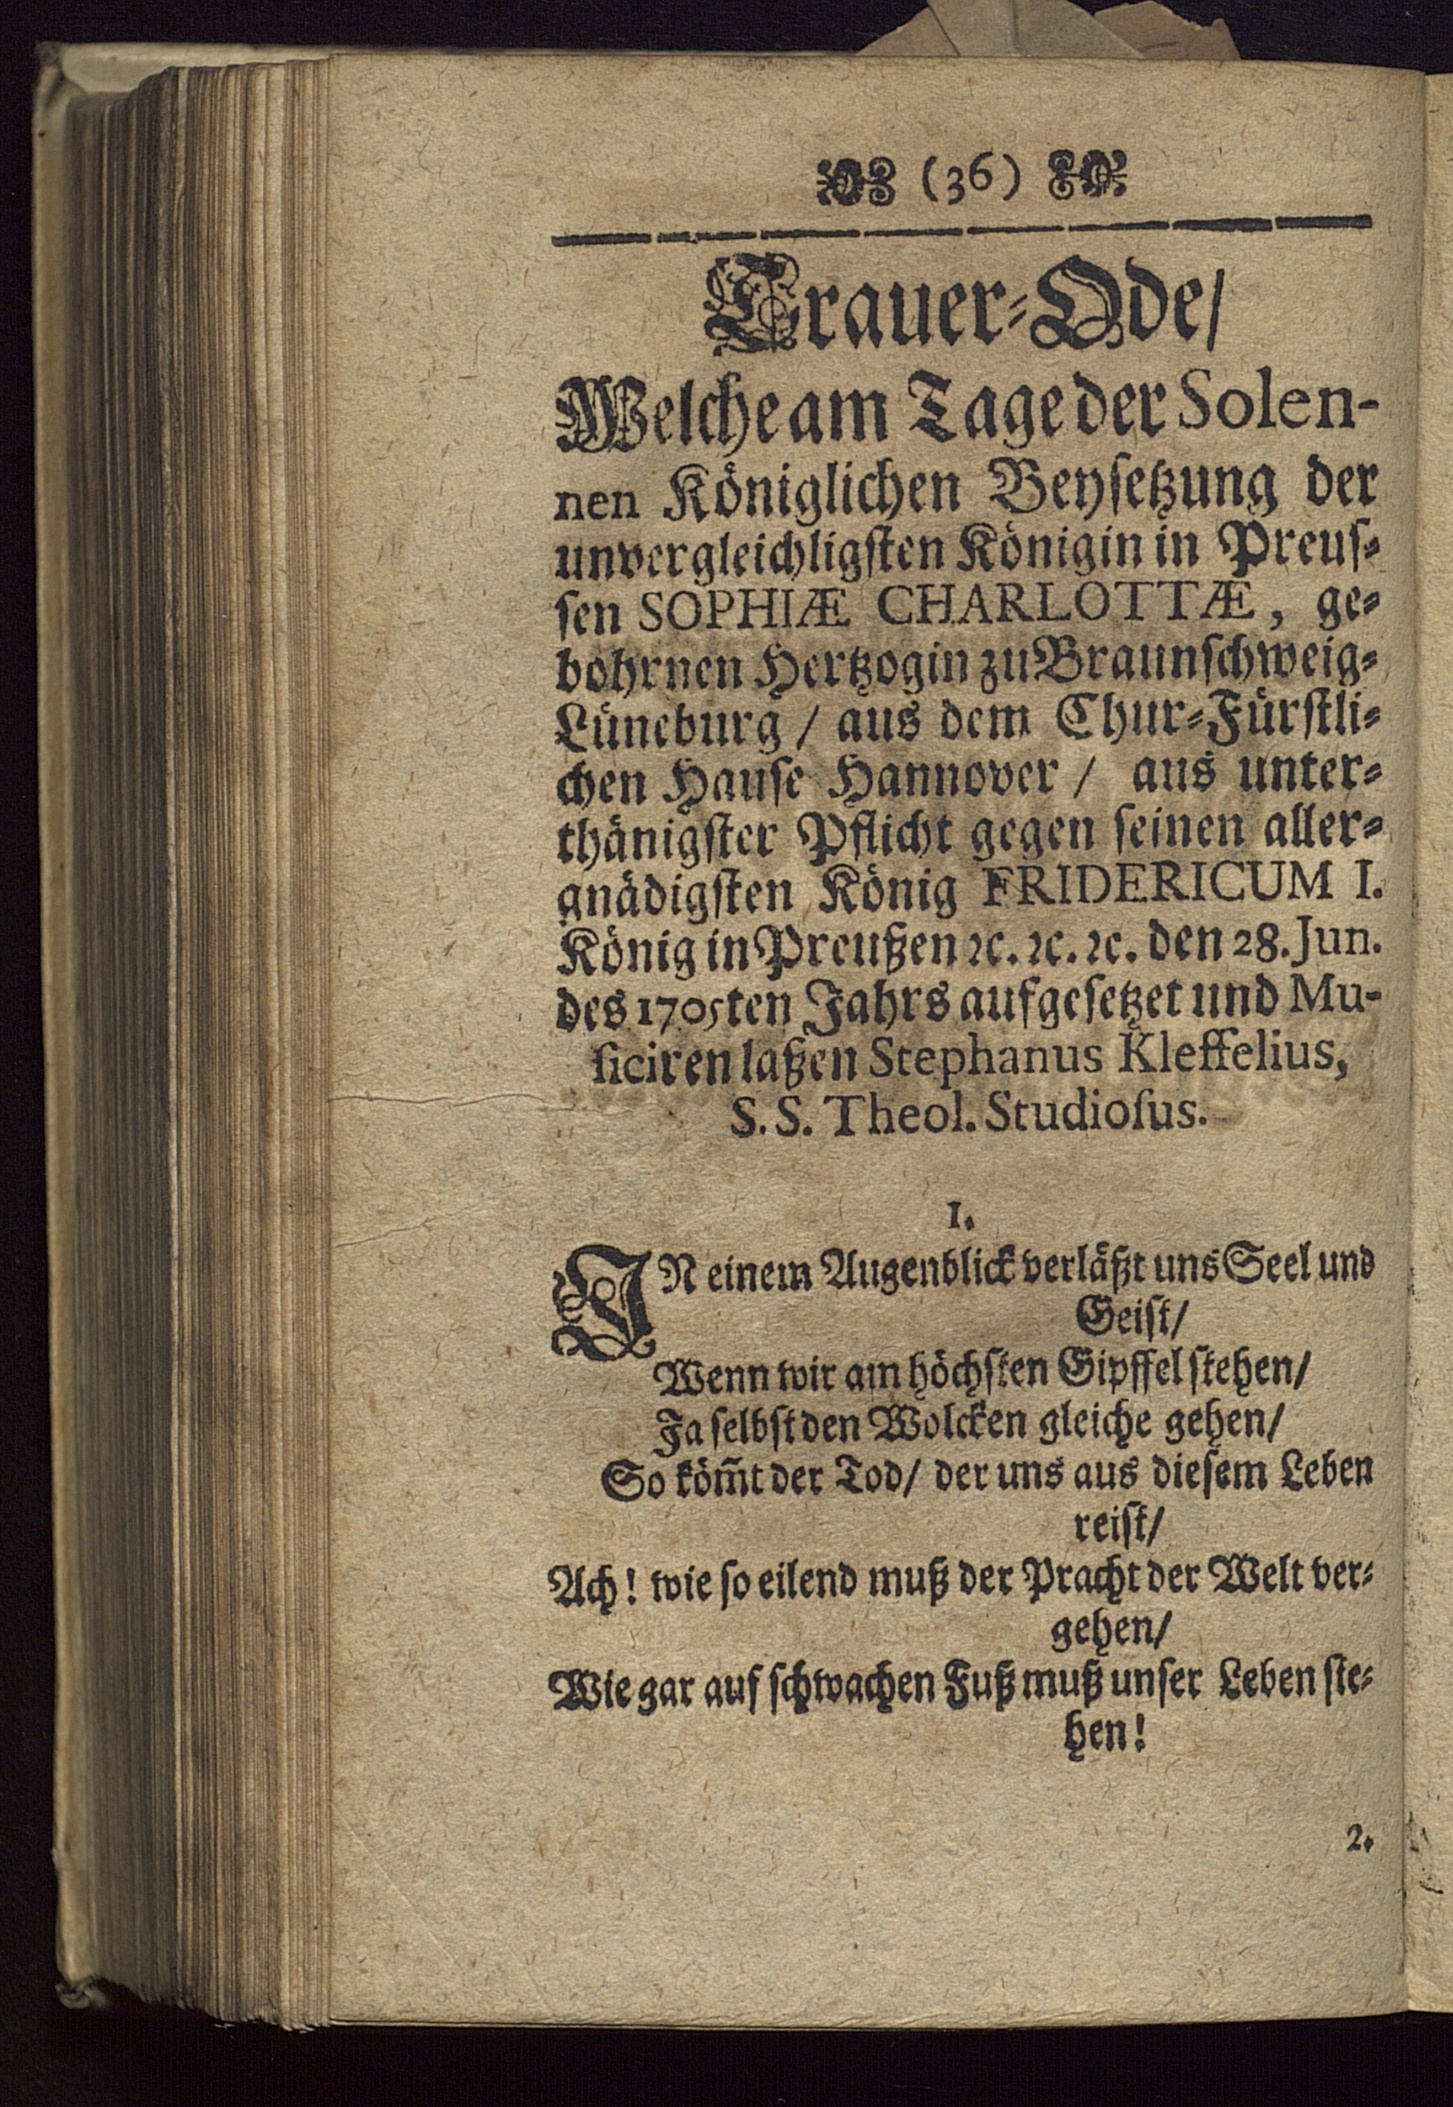 (36)
Trauer-Ode/
Welche am Tage der Solen-
nen Königlichen Beysetzung der
unvergleichligsten Königin in Preus-
sen SOPHIÆ CHARLOTTÆ, ge-
bohrnen Hertzogin zu Braunschweig-
Lüneburg / aus dem Chur-Fürstli-
chen Hause Hannover / aus unter-
thänigster Pflicht gegen seinen aller-
gnädigsten König FRIDERICUM I.
König in Preußen ꝛc. ꝛc. ꝛc. den 28. Jun.
des 1705ten Jahrs aufgesetzet und Mu-
siciren laßen Stephanus Kleffelius,
S. S. Theol. Studiosus.
1.
IN einem Augenblick verläßt uns Seel und
Geist/
Wenn wir am höchsten Gipffel stehen/
Ja selbst den Wolcken gleiche gehen/
So köm̃t der Tod/ der uns aus diesem Leben
reist/
Ach! wie so eilend muß der Pracht der Welt ver-
gehen/
Wie gar auf schwachen Fuß muß unser Leben ste-
hen!
2.